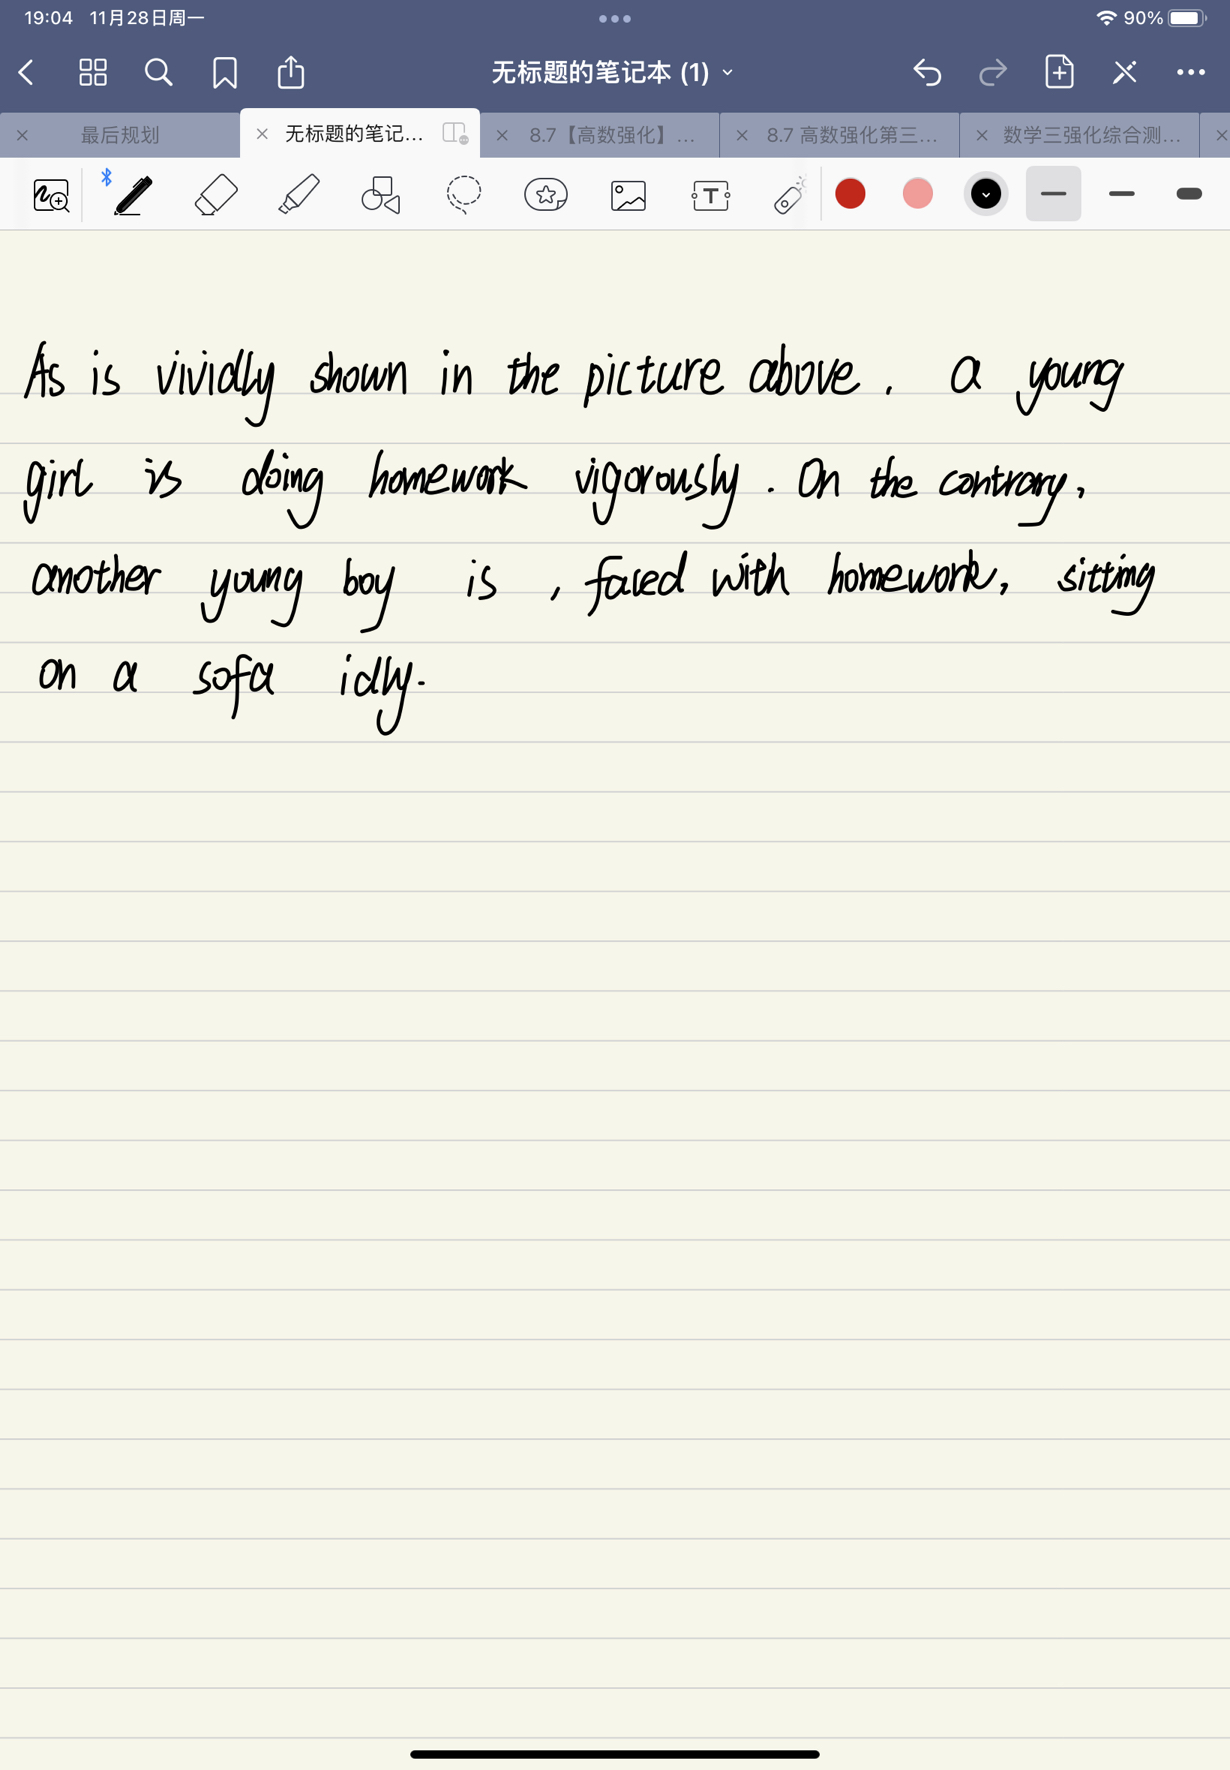 19:04 11月28日周一 90%
无标题的笔记本 (1)
最后规划 无标题的笔记... 8.7【高数强化】... 8.7 高数强化第三... 数学三强化综合测...
As is vividly shown in the picture above, a young
girl is doing homework vigorously. On the contrary,
another young boy is , faced with homework, sitting
on a sofa idly.